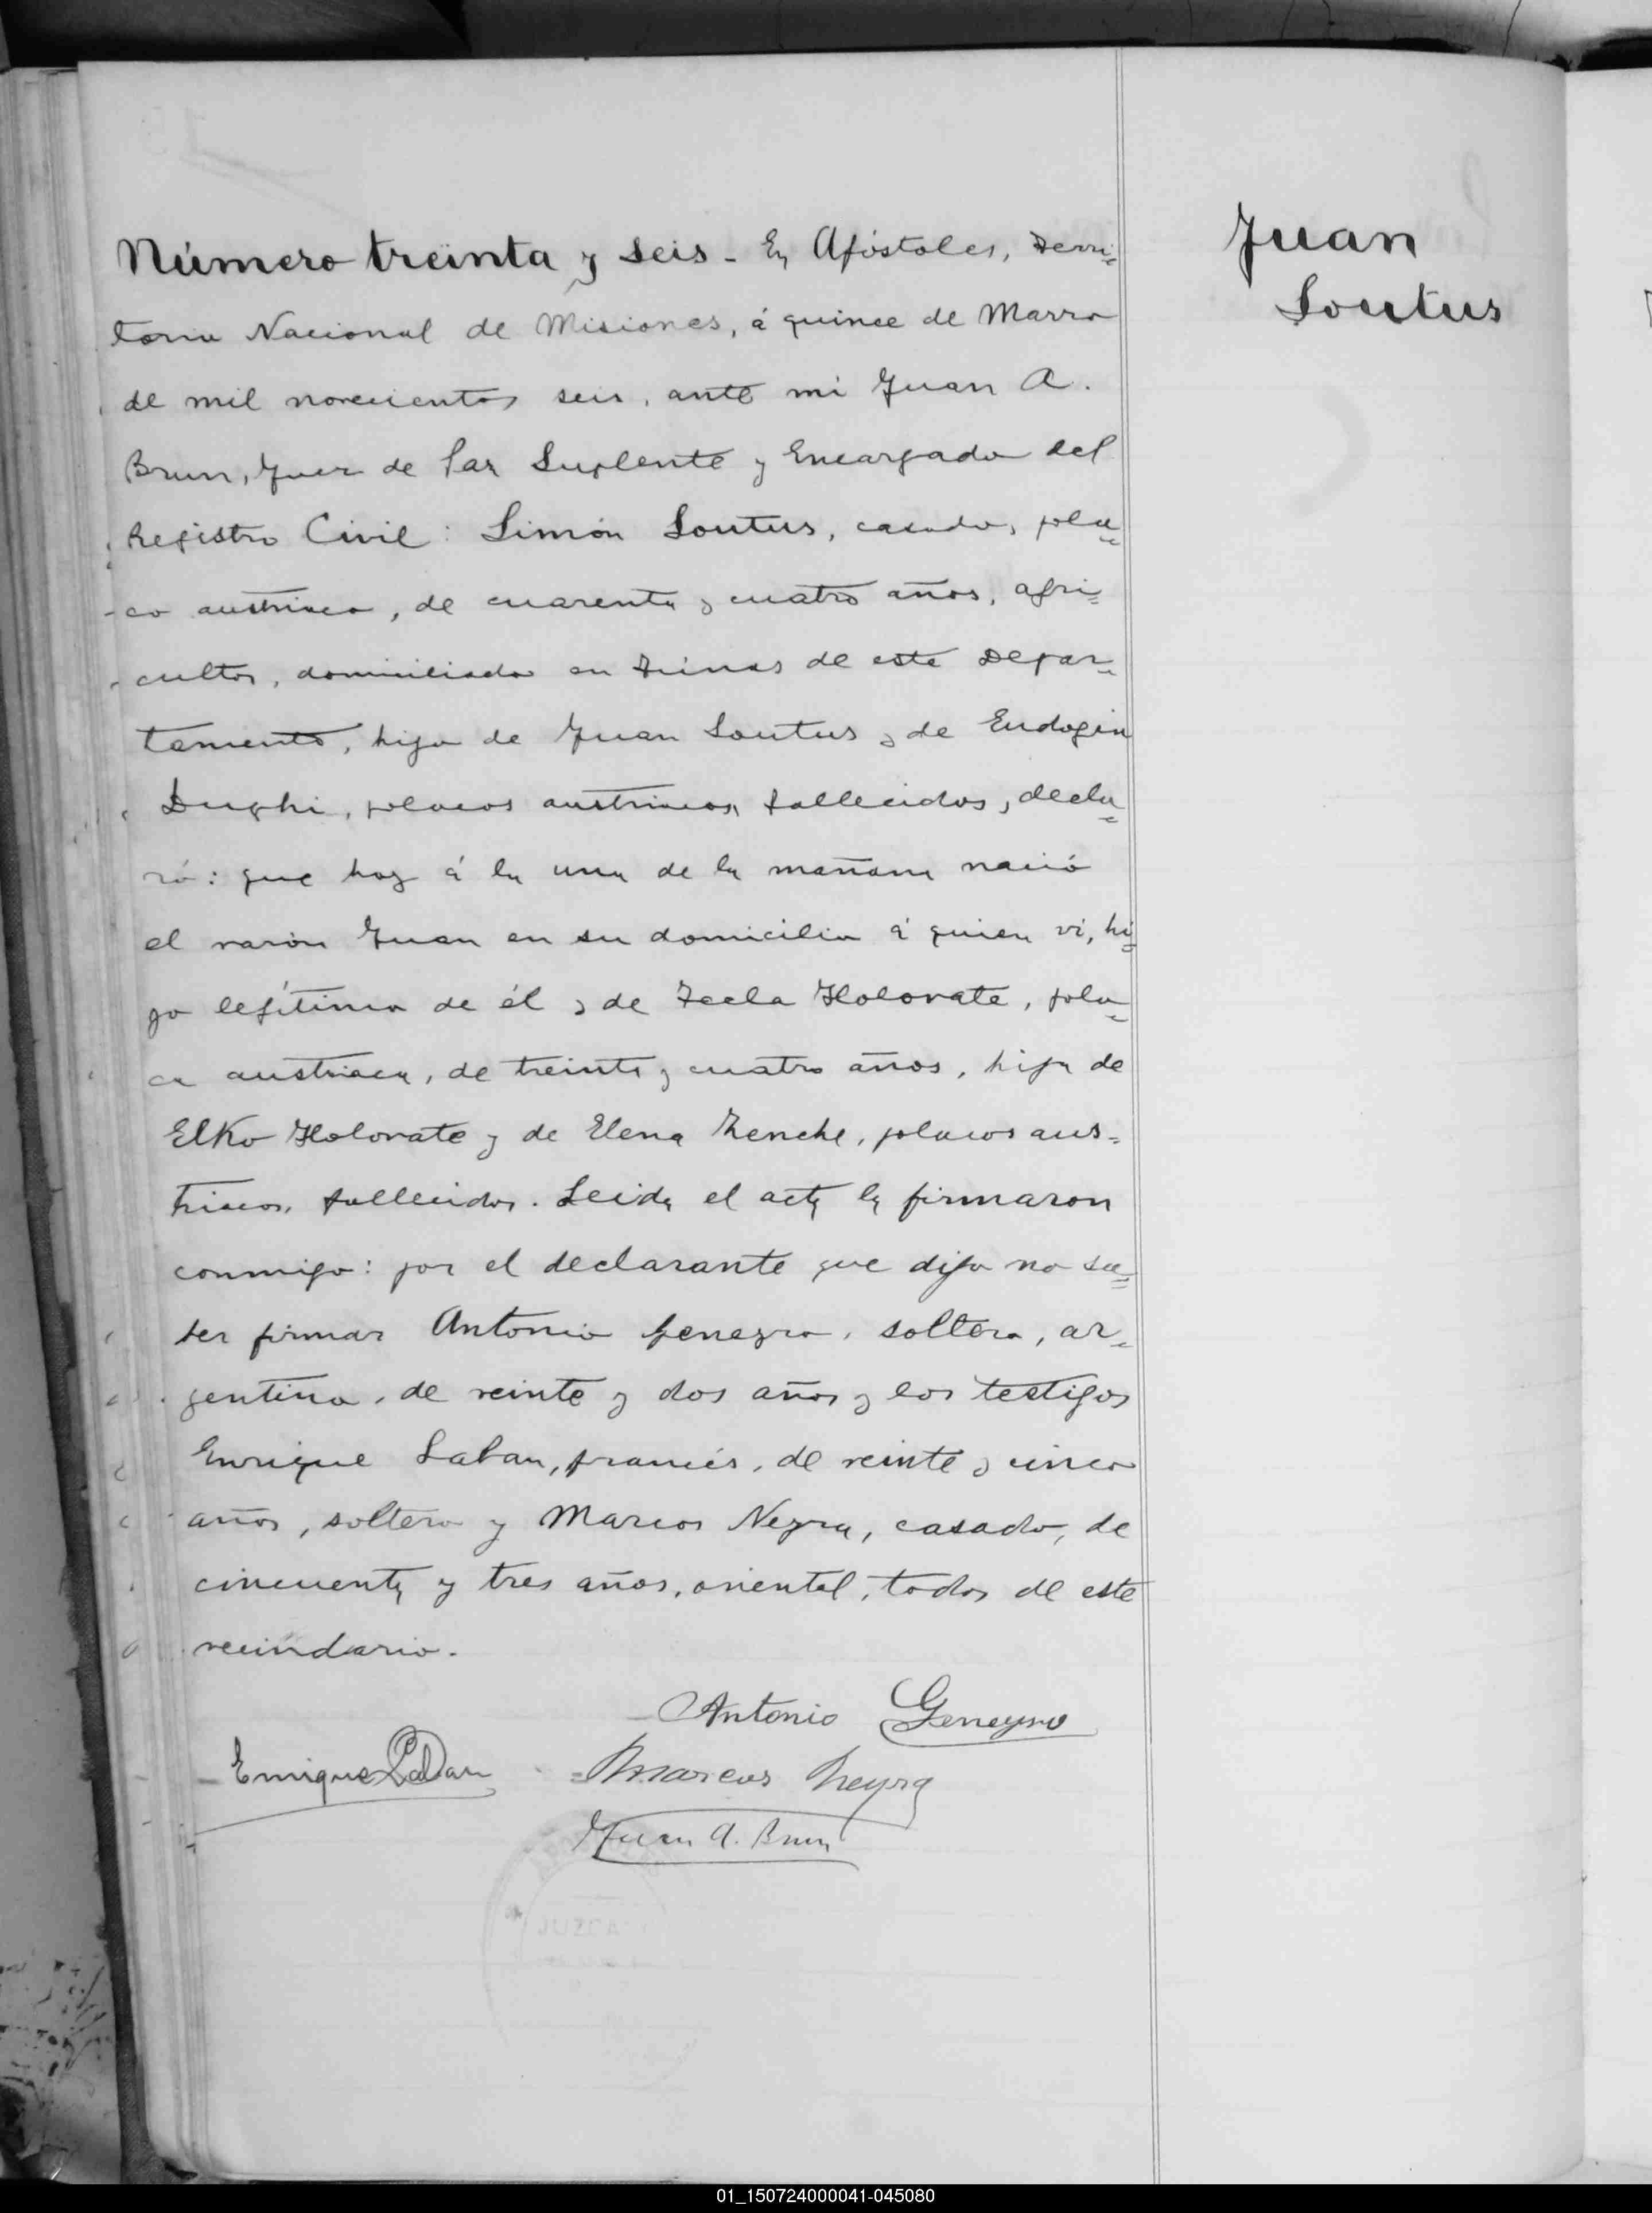 Número treinta y seis - En Apóstoles, Terri=
torio Nacional de Misiones, á quince de Marzo
de mil novecientos seis, ante mi Juan A.
Brun, Juez de Paz Suplente y Encargado del
Registro Civil: Simón Soutus, casado, pola=
co austriaco, de cuarenta y cuatro años, agri=
cultor, domiciliado en de este Depar=
tamento, hijo de Juan Soutus y de Eudogia
Dughi, polacos austriacos, fallecidos, decla=
ró: que hoy á la una de la mañana nació
el varón Juan en su domicilio á quien ví, hi=
jo legítimo de él y de Tecla Holovate, pola=
ca austriaca, de treinta y cuatro años, hija de
Elko Holovate y de Elena Zenche, polacos aus=
triacos, fallecidos. Leida el acta la firmaron
conmigo: por el declarante que dijo no sa=
ber firmar Antonio Geneyro, soltero, ar=
gentino, de veinte y dos años y los testigos
Enrique Laban, francés, de veinte y cinco
años, soltero y Marcos Neyra, casado, de
cincuenta y tres años, oriental, todos de este
vecindario.
Antonio Geneyro
Enrique Laban
Marcos Neyra
Juan A. Brun
JUZGA
Juan
Soutus
01_150724000041-045080